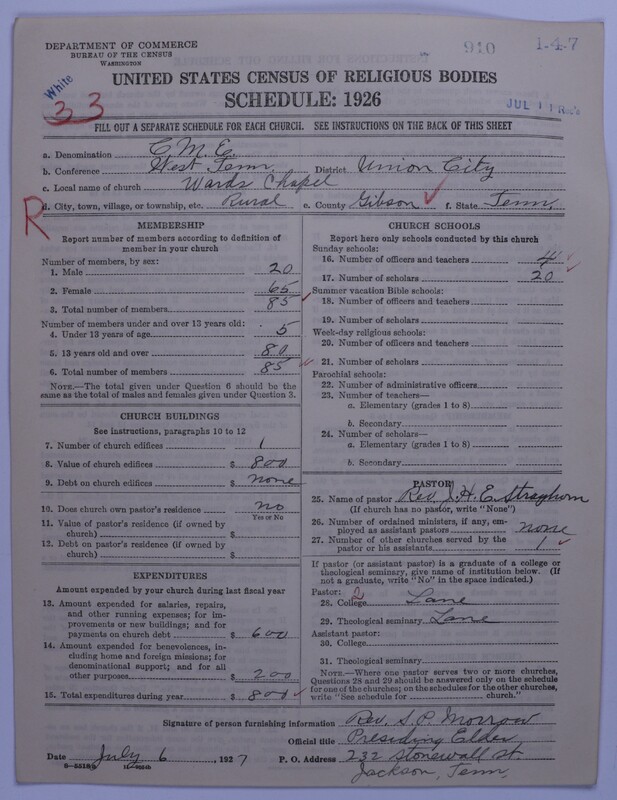 DEPARTMENT OF COMMERCE
BUREAU OF THE CENSUS
WASHINGTON
910
1-4-7
White
33
UNITED STATES CENSUS OF RELIGIOUS BODIES
SCHEDULE: 1926
JUL 11
FILL OUT A SEPARATE SCHEDULE FOR EACH CHURCH. SEE INSTRUCTIONS ON THE BACK OF THIS SHEET
a. Denomination C. M. E.
b. Conference West Tenn. District Union City
c. Local name of church Wards Chapel
R
d. City, town, village, or township, etc. Rural e. County Gibson f. State Tenn.
MEMBERSHIP
Report number of members according to definition of
member in your church
Number of members, by sex:
1. Male 20
2. Female 65
3. Total number of members 85
Number of members under and over 13 years old:
4. Under 13 years of age 5
5. 13 years old and over 80
6. Total number of members 85
NOTE.—The total given under Question 6 should be
the same as the total of males and females given under Question 3.
CHURCH BUILDINGS
See instructions, paragraphs 10 to 12
7. Number of church edifices 1
8. Value of church edifices $ 800
9. Debt on church edifices $ none
10. Does church own pastor's residence? no
Yes or No
11. Value of pastor's residence (if owned by
church) $
12. Debt on pastor's residence (if owned by
church) $
EXPENDITURES
Amount expended by your church during last fiscal year
13. Amount expended for salaries, repairs,
and other running expenses; for im-
provements or new buildings; and for
payments on church debt $ 600
14. Amount expended for benevolences, in-
cluding home and foreign missions; for
denominational support; and for all
other purposes $ 200
15. Total expenditures during year $ 800
CHURCH SCHOOLS
Report here only schools conducted by this church
Sunday schools:
16. Number of officers and teachers 4
17. Number of scholars 20
Summer vacation Bible schools:
18. Number of officers and teachers
19. Number of scholars
Week-day religious schools:
20. Number of officers and teachers
21. Number of scholars
Parochial schools:
22. Number of administrative officers
23. Number of teachers—
a. Elementary (grades 1 to 8)
b. Secondary
24. Number of scholars—
a. Elementary (grades 1 to 8)
b. Secondary
PASTOR
25. Name of pastor Rev. J. H. E. Strayhorn
(If church has no pastor, write "None")
26. Number of ordained ministers, if any, em-
ployed as assistant pastors none
27. Number of other churches served by the
pastor or his assistants 1
If pastor (or assistant pastor) is a graduate of a college or
theological seminary, give name of institution below. (If
not a graduate, write "No" in the space indicated.)
Pastor: 2
28. College Lane
29. Theological seminary Lane
Assistant pastor:
30. College
31. Theological seminary
NOTE.—Where one pastor serves two or more churches,
Questions 28 and 29 should be answered only on the schedule
for one of the churches; on the schedules for the other churches,
write "See schedule for church."
Signature of person furnishing information Rev. S. P. Morrow
Official title Presiding Elder
Date July 6, 1927 P. O. Address 232 Stonewall St.
Jackson, Tenn.